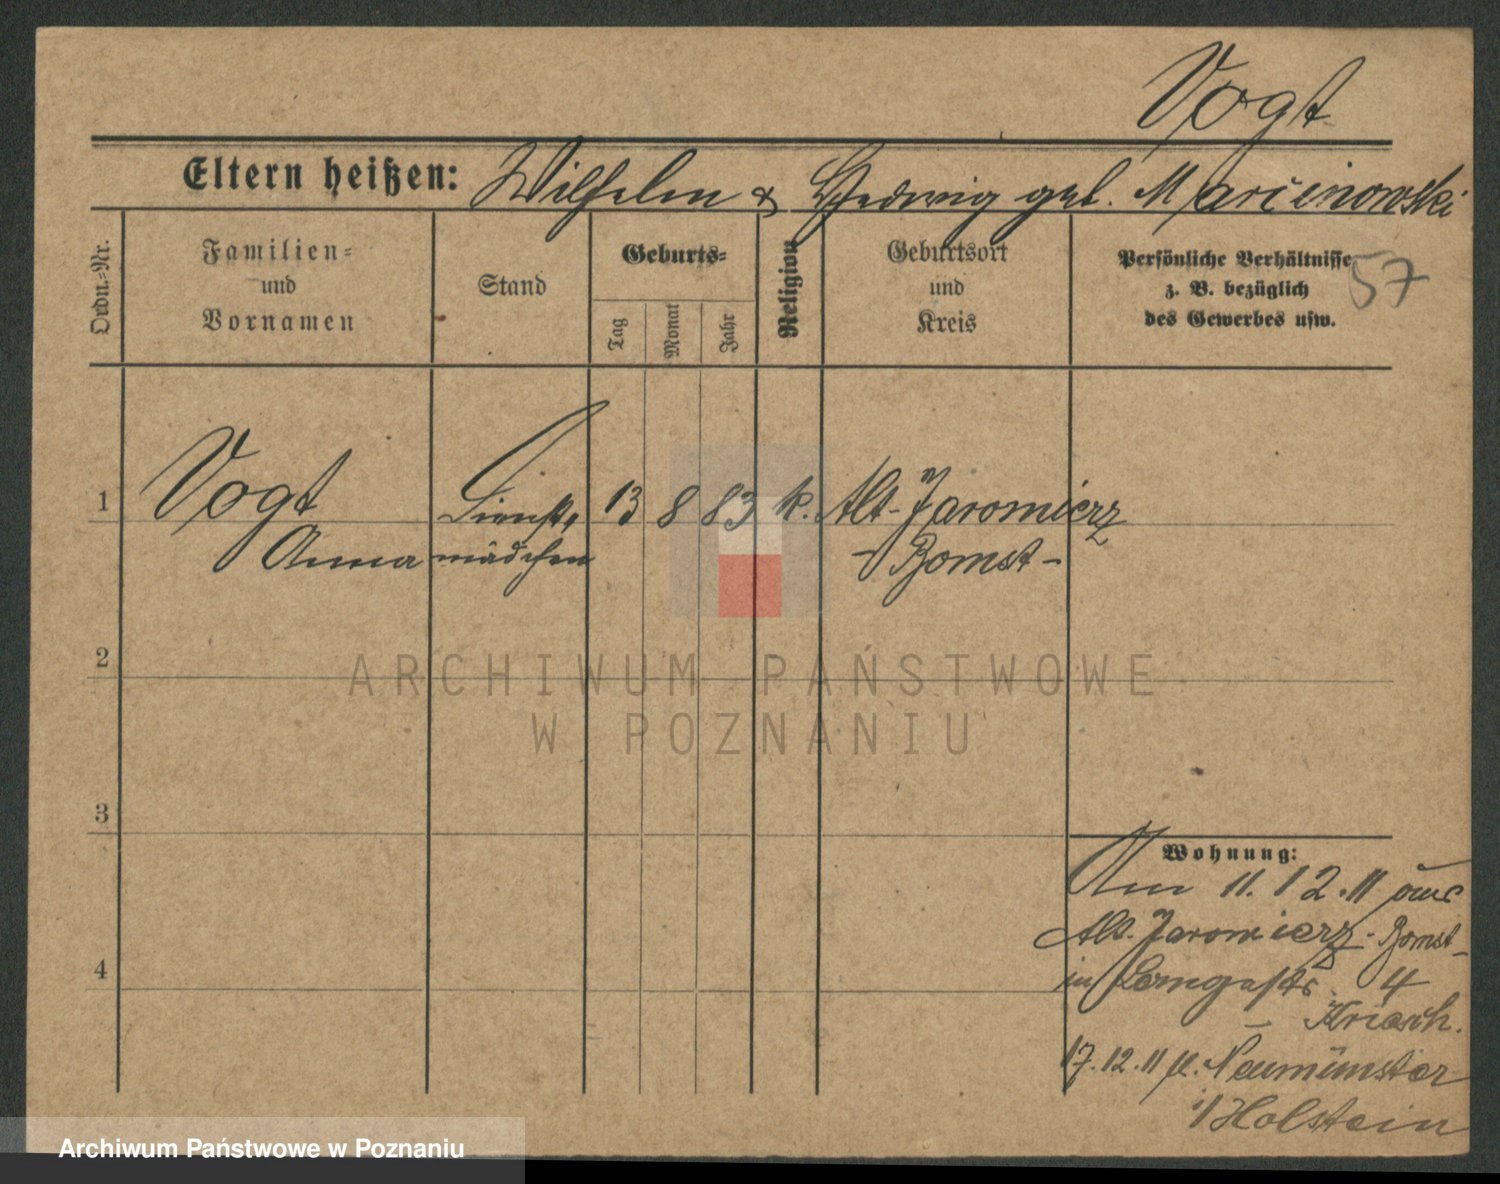 Vogt
Eltern heißen: Wilhelm & Hedwig geb. Marcinowski
Ordn.-Nr.
Familien-
und
Vornamen
Stand
Geburts-
Tag
Monat
Jahr
Religion
Geburtsort
und
Kreis
Persönliche Verhältnisse
z. B. bezüglich
des Gewerbes usw.
57
1 Vogt Dienst- 13 8 83 k. Alt-Jaromierz
Anna mädchen - Bomst -
2
3
4
Wohnung:
Am 11.12.11 aus
Alt-Jaromierz-Bomst-
in 4
17.12.11 n. Neumünster
i/Holstein
ARCHIWUM PAŃSTWOWE
W POZNANIU
Archiwum Państwowe w Poznaniu